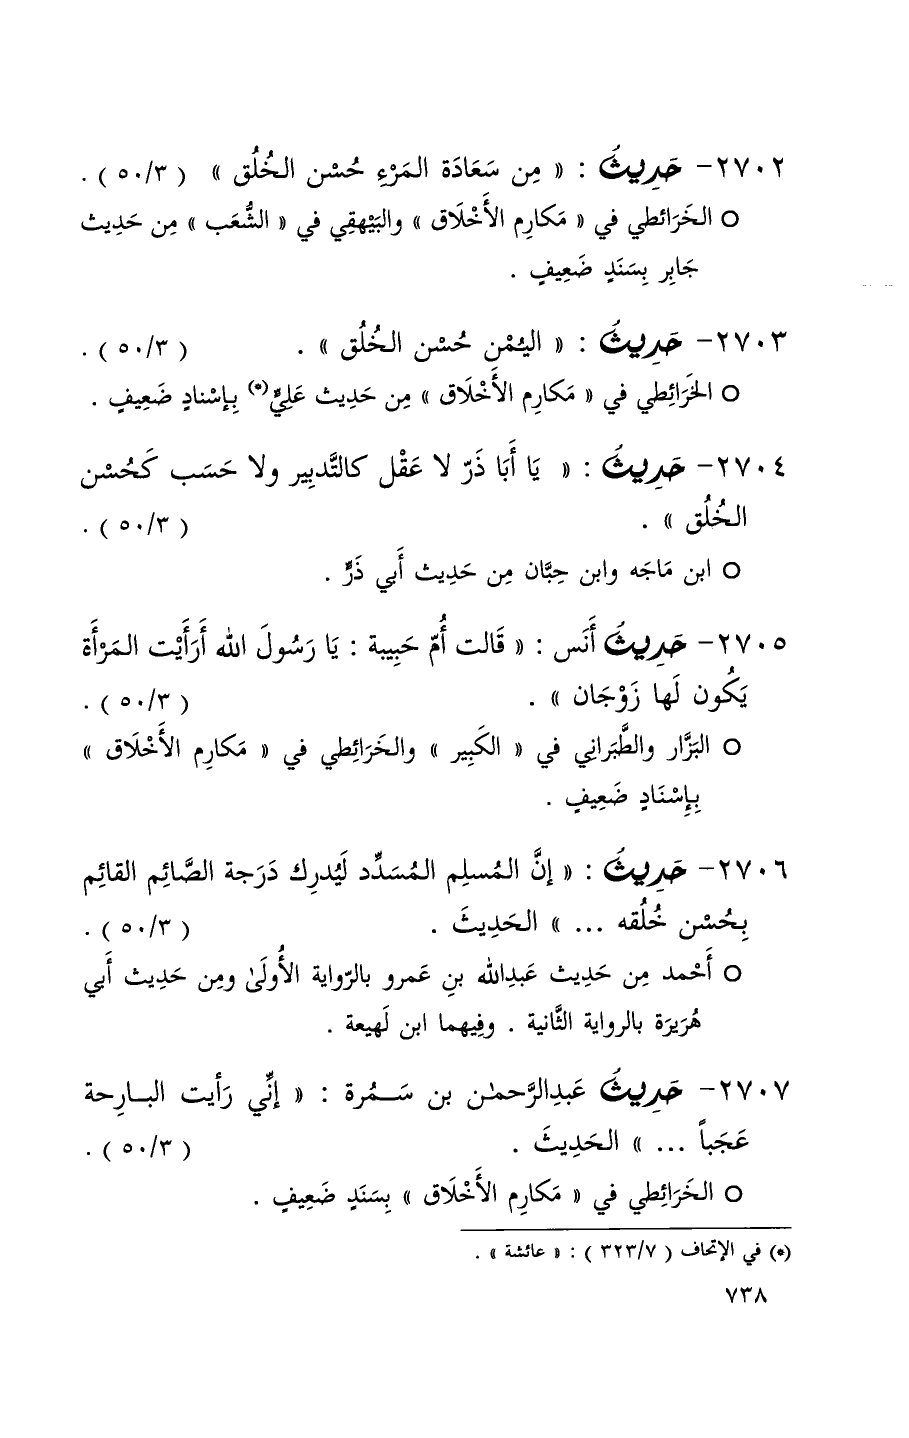 ٢٧٠٢- حَدِيثُ : « مِن سَعَادَة المَرْءِ حُسْن الخُلُق » ( ٥٠/٣ ) .
○ الخَرَائطي في « مَكارِم الأَخْلَاق » والبَيْهقِي في « الشُّعَب » مِن حَدِيث
جَابِر بِسَنَدٍ ضَعِيفٍ .
٢٧٠٣- حَدِيثُ : « اليُمْن حُسْن الخُلُق » . ( ٥٠/٣ ) .
○ الخَرَائِطي في « مَكارِم الأَخْلَاق » مِن حَدِيث عَلِيٍّ(*) بِإسْنادٍ ضَعِيفٍ .
٢٧٠٤- حَدِيثُ : « يَا أَبَا ذَرّ لا عَقْل كالتَّدبِير ولا حَسَب كَحُسْن
الخُلُق » . ( ٥٠/٣ ) .
○ ابن مَاجَه وابن حِبَّان مِن حَدِيث أَبي ذَرٍّ .
٢٧٠٥- حَدِيثُ أَنَس : « قَالت أُمّ حَبِيبة : يَا رَسُولَ الله أَرَأَيْت المَرْأَة
يَكُون لَها زَوْجَان » . ( ٥٠/٣ ) .
○ البَزَّار والطَّبَرانِي في « الكَبِير » والخَرَائِطي في « مَكارِم الأَخْلَاق »
بِإِسْنَادٍ ضَعِيفٍ .
٢٧٠٦- حَدِيثُ : « إنَّ المُسلِم المُسَدِّد لَيُدرِك دَرَجة الصَّائِم القائِم
بِحُسْن خُلُقه ... » الحَدِيثَ . ( ٥٠/٣ ) .
○ أَحْمد مِن حَدِيث عَبدِالله بنِ عَمرو بالرّواية الأُولَىٰ ومِن حَدِيث أَبي
هُرَيرَة بالرواية الثَّانية . وفِيهما ابن لَهيعة .
٢٧٠٧- حَدِيثُ عَبدِالرَّحمٰن بن سَــمُرة : « إنِّي رَأيت البــارِحة
عَجَباً ... » الحَدِيثَ . ( ٥٠/٣ ) .
○ الخَرَائِطي في « مَكارِم الأَخْلَاق » بِسَنَدٍ ضَعِيفٍ .
(*) في الإتحاف ( ٣٢٣/٧ ) : « عائشة » .
٧٣٨